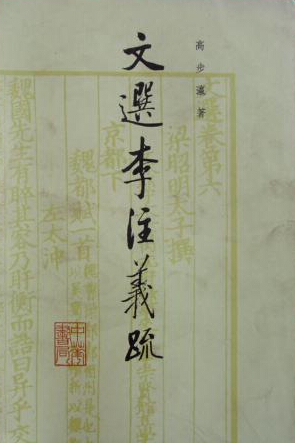 高步瀛著
文選李注義疏
文選卷第六
梁昭明太子撰
京都下
魏都賦一首
左太沖
魏國先生有睟其容乃盱衡而誥曰异乎交
中華書局